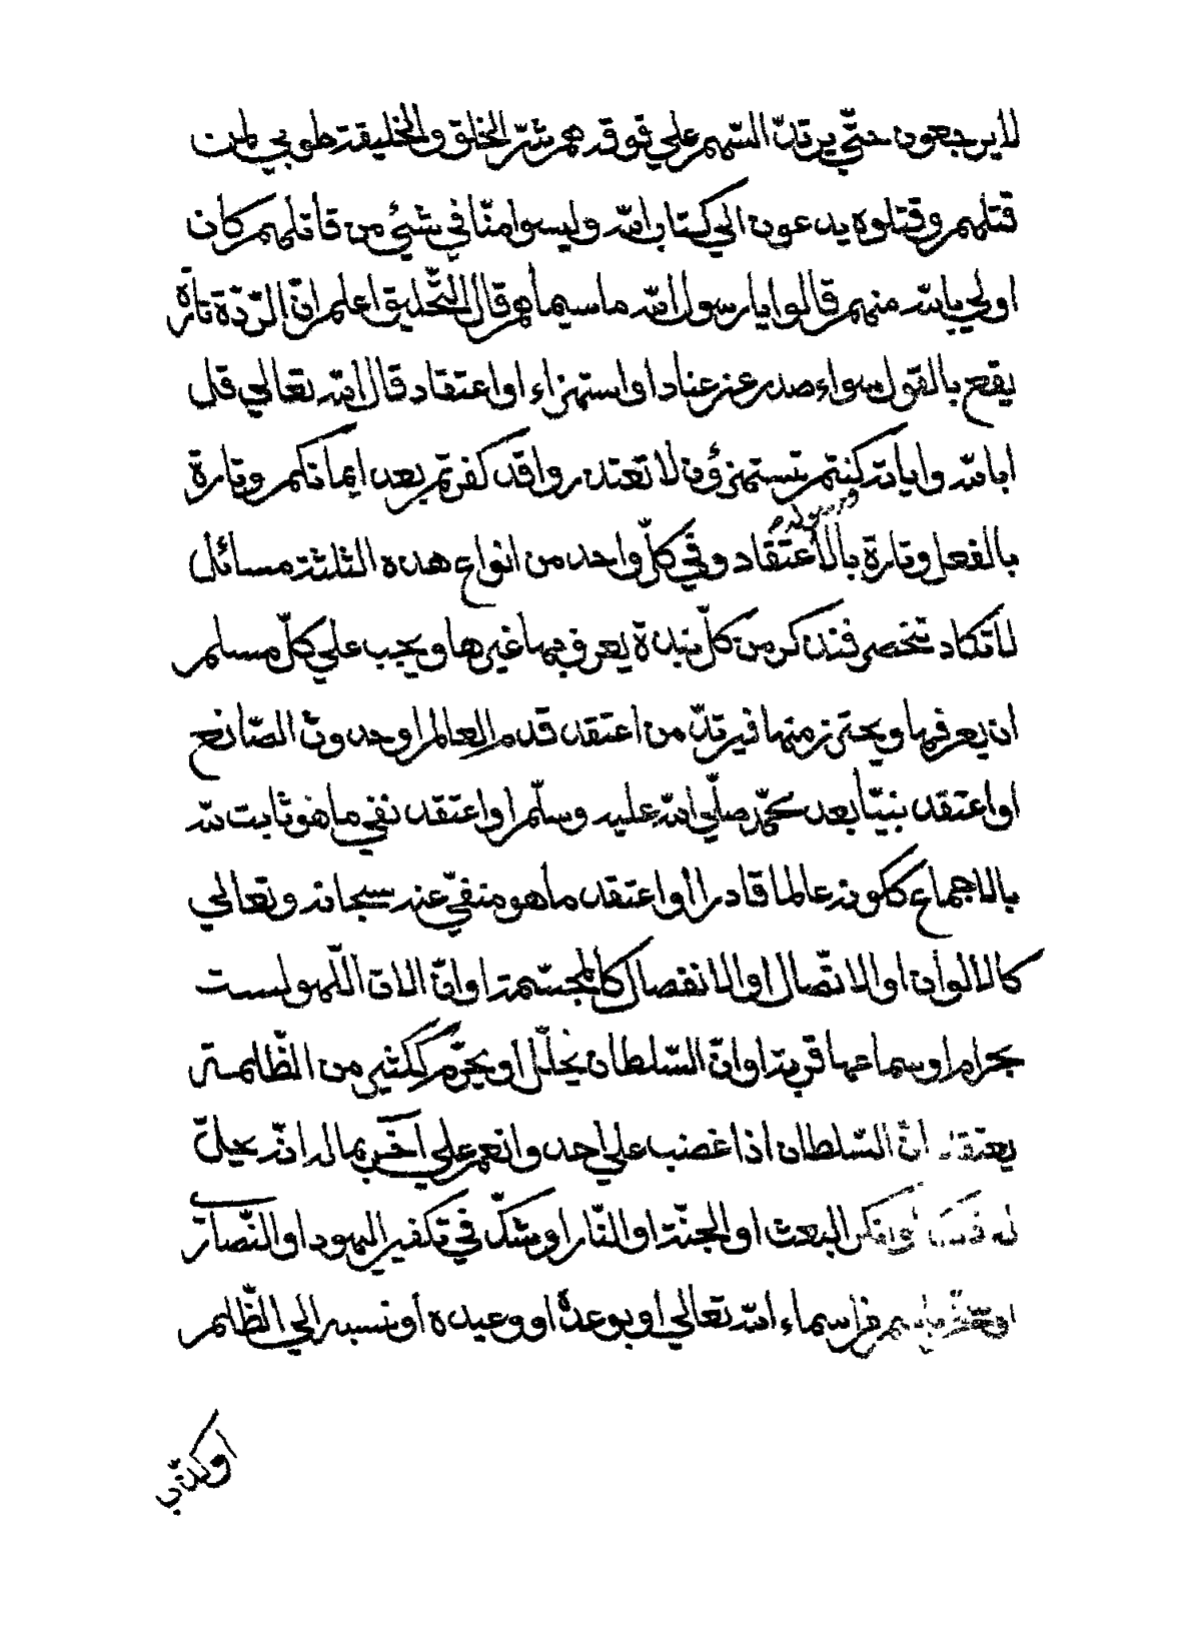 لا يرجعون حتّي يرتدّ السّهم علي فوقه هم شرّ الخلق والخليقة طوبي لمن
قتلهم وقتلوه يدعون الي كتاب الله وليسوا منّا في شئ من قاتلهم كان
اولي بالله منهم قالوا يا رسول الله ما سيماهم قال التّحليق اعلم انّ الرّدّة تارة
يقع بالقول سواء صدر عن عناد او استهزاء او اعتقاد قال الله تعالي قل
ابالله واياته ورسوله كنتم تستهزؤن لا تعتذروا قد كفرتم بعد ايمانكم وتارة
بالفعل وتارة بالاعتقاد وفي كلّ واحد من انواع هذه الثلثة مسائل
لا تكاد تنحصر فنذكر من كلّ نبذة يعرف بها غيرها ويجب علي كلّ مسلم
ان يعرفها ويحترز منها فيرتدّ من اعتقد قدم العالم او حدوث الصّانع
او اعتقد نبيّا بعد محمّد صلّي الله عليه وسلّم او اعتقد نفي ما هو ثابت لله
بالاجماع ككونه عالما قادرا أو اعتقد ما هو منفيّ عنه سبحانه وتعالي
كالالوان او الاتّصال او الانفصال كالمجسّمة او انّ الات اللّهو ليست
بحرام او سماعها قربة او انّ السّلطان يحلّل أو يحرّم ككثير من الظّالمة
يعتقد انّ السّلطان اذا غضب علي احد وانعم علي آخر بماله انّه يحلّ
له البعث او الجنّة او النّار او شكّ في تكفير اليهود او النّصارى
اسماء الله تعالي او بوعده او وعيده أو نسبه الي الظّلم
او كذّب